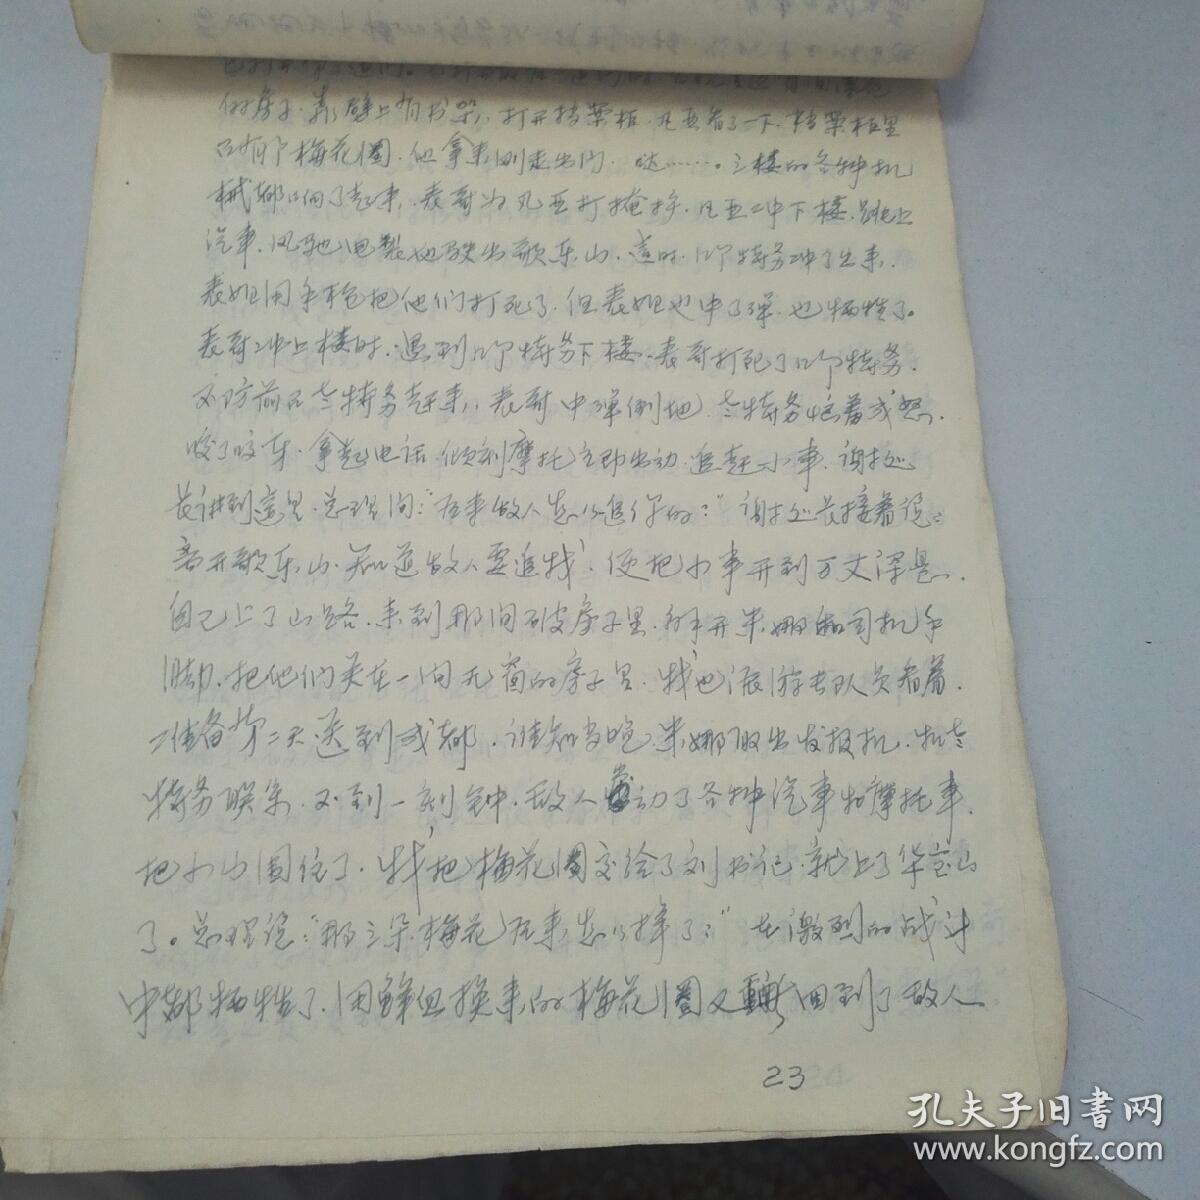 的房子，靠壁上有书架，打开档案柜，凡亚看了一下，档案柜里
只有个梅花图，他拿来刚走出门，哒……。三楼的各种机
械都响了起来，表哥为凡亚打掩护，凡亚冲下楼，跳上
汽车，风驰电掣地驶出歌乐山，这时，几个特务冲了出来，
表姐用手枪把他们打死了，但表姐也中了弹，也牺牲了。
表哥冲上楼时，遇到几个特务下楼，表哥打死了几个特务，
不防前面老特务赶来，表哥中弹倒地，老特务恼羞成怒，
咬了咬牙，拿起电话，倾刻摩托立即出动，追赶小车，谢处
长讲到这里，总理问：“后来敌人怎么追你的？”谢处长接着说：
离开歌乐山，知道敌人要追我，便把小车开到万丈深悬，
自己上了山路，来到那间破房子里，解开米娜和司机手
脚，把他们关在一间无窗的房子里，我也派游击队员看着，
准备第二天送到成都，谁知当晚，米娜取出发报机，和老
特务联系，不到一刻钟，敌人出动了各种汽车和摩托车，
把小山围住了，我把梅花图交给了刘书记，就上了华蓥山
了。总理说：“那三朵梅花后来怎么样了？”在激烈的战斗
中都牺牲了，用鲜血换来的梅花图又转回到了敌人
23
孔夫子旧书网
www.kongfz.com